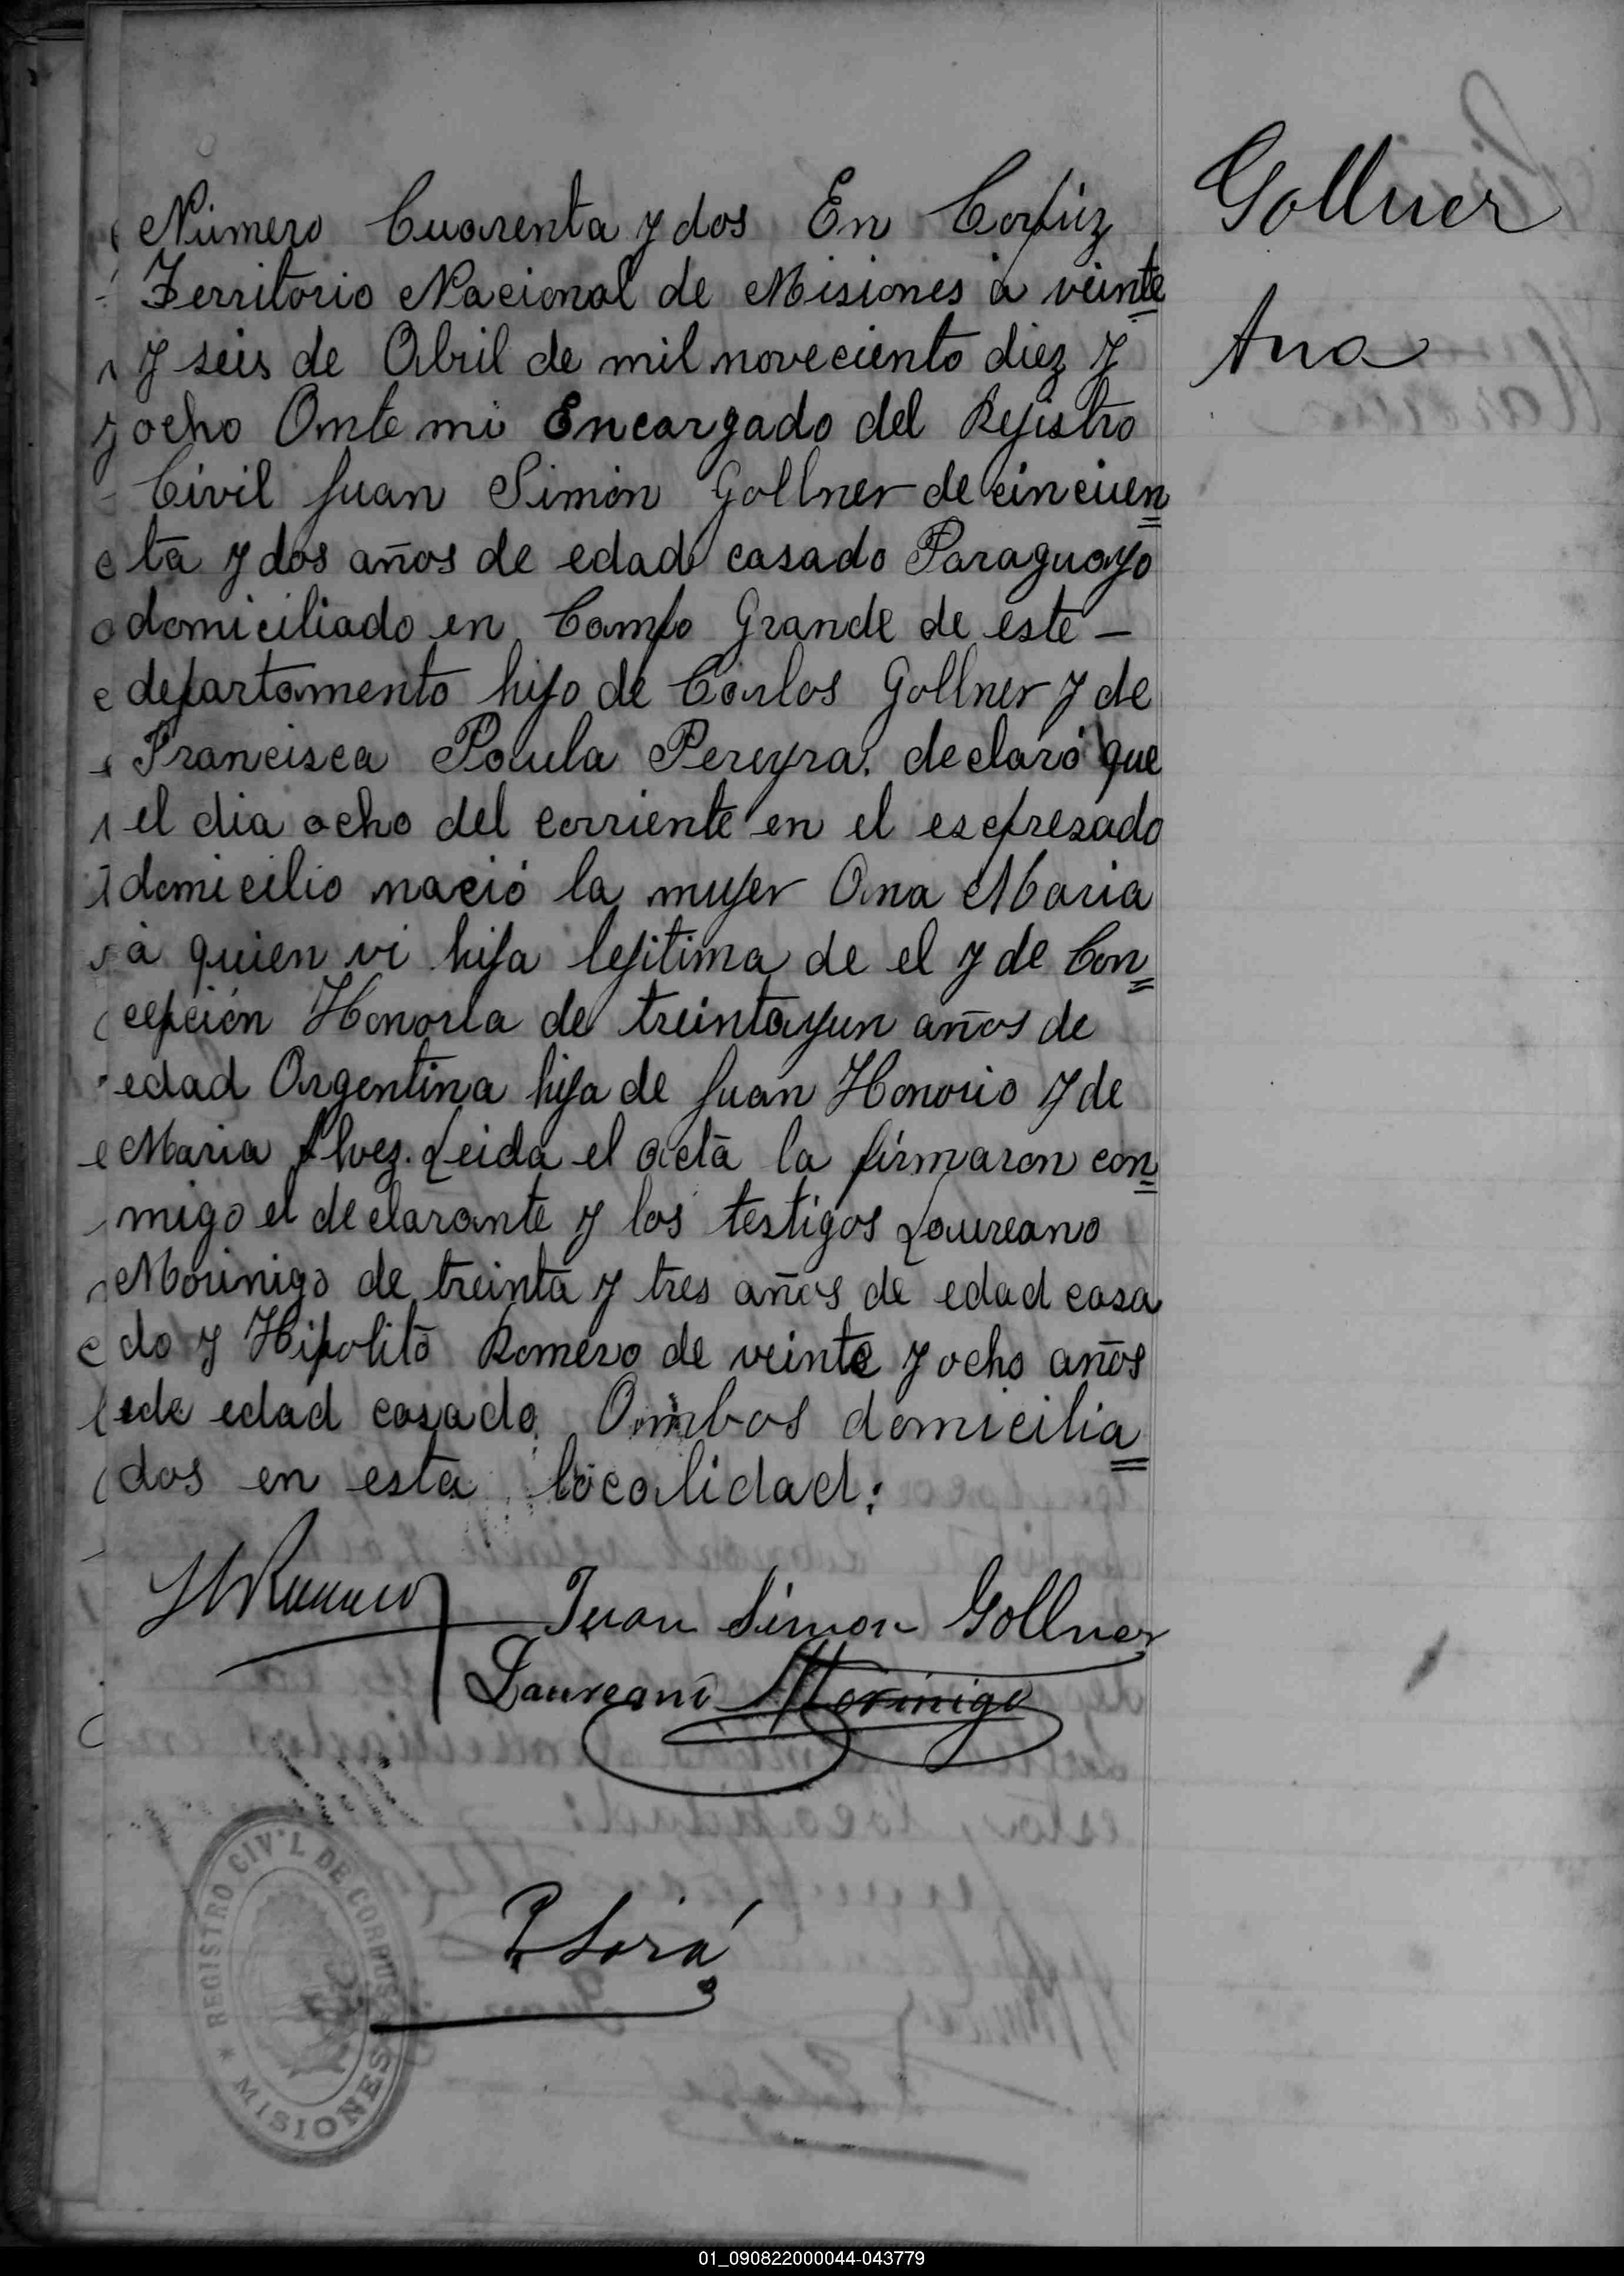 Gollner
Ana
Número Cuarenta y dos En Corpuz
Territorio Nacional de Misiones à veinte
y seis de Abril de mil noveciento diez y
ocho Ante mi Encargado del Rejistro
Civil Juan Simón Gollner de cincuen
ta y dos años de edad casado Paraguayo
domiciliado en Campo Grande de este –
departamento hijo de Carlos Gollner y de
Francisca Paula Pereyra. declaró que
el dia ocho del corriente en el esepresado
domicilio nació la mujer Ana Maria
à quien vi hija lejitima de el y de Con
cepción Honoria de treintayun años de
edad Argentina hija de Juan Honorio y de
Maria Alvez. Leida el acta la firmaron con
migo el declarante y los testigos Laureano
Morinigo de treinta y tres años de edad casa
do y Hipolito Romero de veinte y ocho años
de edad casado. Ambos domicilia
dos en esta localidad:
HRomero
Juan Simon Gollner
Laureano Morinigo
REGISTRO CIVIL DE CORPUS
* MISIONES
01_090822000044-043779